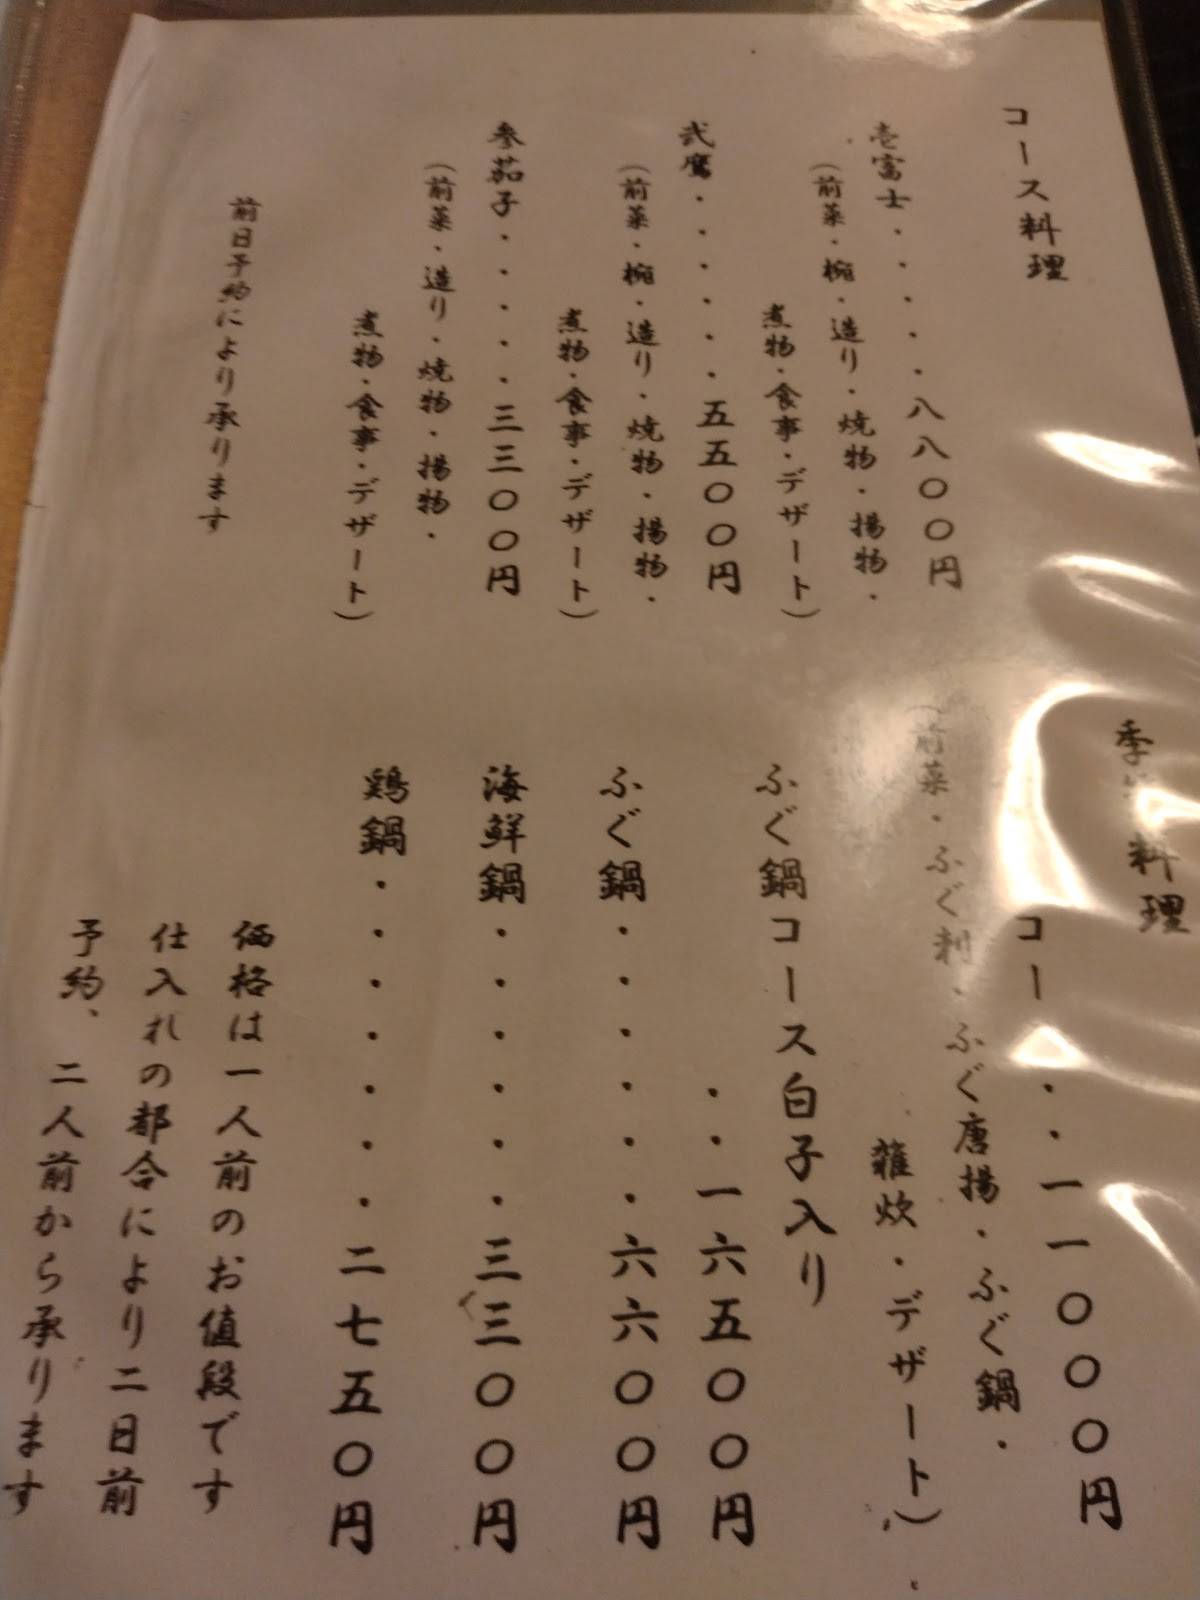 コース料理
壱富士・・・・・八八〇〇円
(前菜・椀・造り・焼物・揚物・
煮物・食事・デザート)
弐鷹・・・・・五五〇〇円
(前菜・椀・造り・焼物・揚物・
煮物・食事・デザート)
参茄子・・・・・三三〇〇円
(前菜・造り・焼物・揚物・
煮物・食事・デザート)
前日予約により承ります
季 料理
コー・・一一〇〇〇円
(前菜・ふぐ刺・ふぐ唐揚・ふぐ鍋・
雑炊・デザート)
ふぐ鍋コース白子入り
・・一六五〇〇円
ふぐ鍋・・・・・・六六〇〇円
海鮮鍋・・・・・・三三〇〇円
鶏鍋・・・・・・・二七五〇円
価格は一人前のお値段です
仕入れの都合により二日前
予約、二人前から承ります